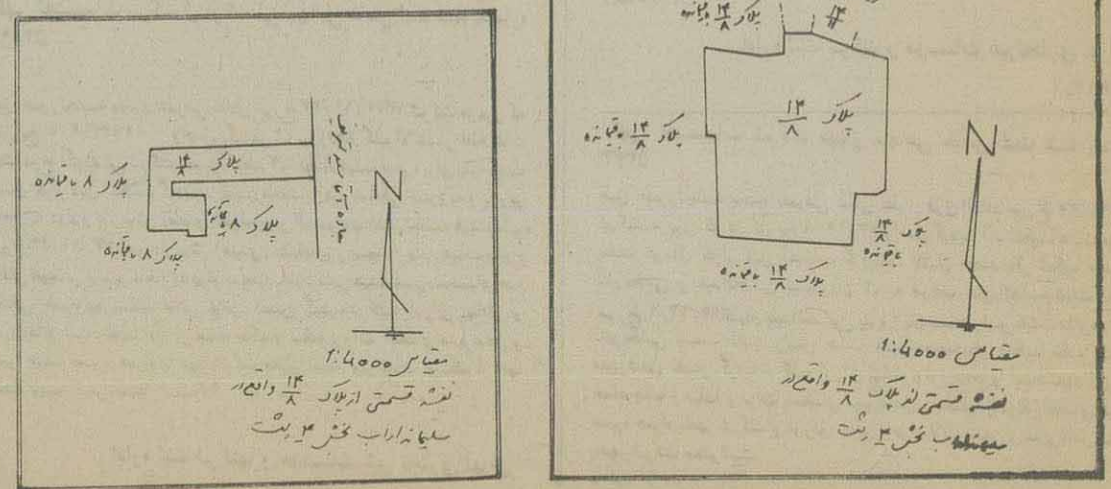 پلاک ۱۴/۸
پلاک ۸ باقیمانده
پلاک ۸ باقیمانده
پلاک ۸ باقیمانده
جاده
N
مقیاس ۱:۲۰۰۰
نقشه قسمتی از پلاک ۱۴/۸ واقع در
سلیمانداراب بخش ۴ رشت
پلاک ۱۴/۸ باقیمانده
پلاک ۱۴/۸
پلاک ۱۴/۸ باقیمانده
پلاک ۱۴/۸
باقیمانده
پلاک ۱۴/۸ باقیمانده
N
مقیاس ۱:۲۰۰۰
نقشه قسمتی از پلاک ۱۴/۸ واقع در
سلیمانداراب بخش ۴ رشت